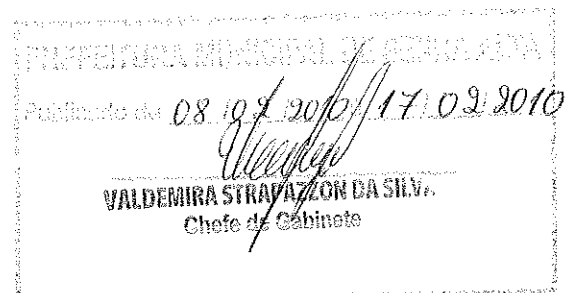 PREFEITURA MUNICIPAL DE SERRA ALTA
Publicado de 08/02/2010/17/02/2010
VALDEMIRA STRAPAZZON DA SILVA
Chefe de Gabinete